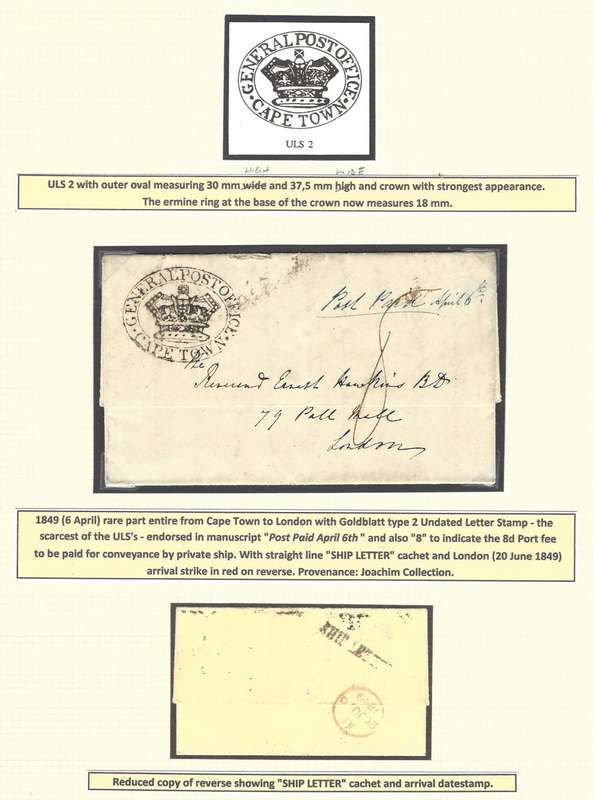 GENERAL POST OFFICE
· CAPE TOWN ·
ULS 2
HIGH WIDE
ULS 2 with outer oval measuring 30 mm wide and 37,5 mm high and crown with strongest appearance.
The ermine ring at the base of the crown now measures 18 mm.
GENERAL POST OFFICE
· CAPE TOWN ·
Post Paid April 6th
8
The
Reverend Ernest Hawkins B.D.
79 Pall Mall
London
1849 (6 April) rare part entire from Cape Town to London with Goldblatt type 2 Undated Letter Stamp - the
scarcest of the ULS's - endorsed in manuscript "Post Paid April 6th" and also "8" to indicate the 8d Port fee
to be paid for conveyance by private ship. With straight line "SHIP LETTER" cachet and London (20 June 1849)
arrival strike in red on reverse. Provenance: Joachim Collection.
SHIP LE
Reduced copy of reverse showing "SHIP LETTER" cachet and arrival datestamp.